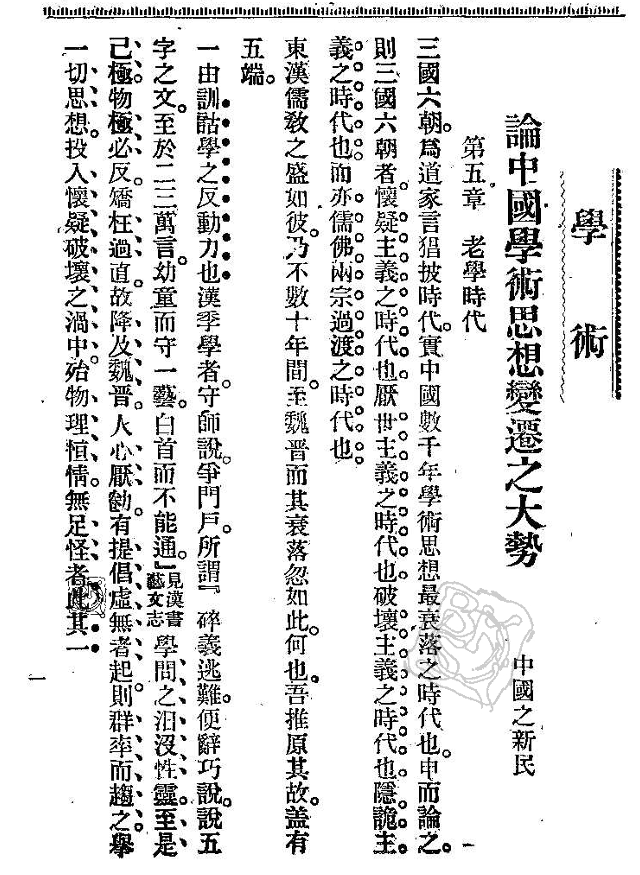 學術
論中國學術思想變遷之大勢
中國之新民
第五章 老學時代
三國六朝。爲道家言猖披時代。實中國數千年學術思想最衰落之時代也。申而論之。
則三國六朝者。懷疑主義之時代也。厭世主義之時代也。破壞主義之時代也。隱詭主
義之時代也。而亦儒佛兩宗過渡之時代也。
東漢儒敎之盛如彼。乃不數十年間。至魏晉而其衰落忽如此。何也。吾推原其故。蓋有
五端。
一由訓詁學之反動力也。漢季學者。守師說。爭門戶。所謂『碎義逃難。便辭巧說。說五
字之文。至於二三萬言。幼童而守一藝。白首而不能通。』見漢書藝文志學問之汨沒性靈。至是
已極。物極必反。矯枉過直。故降及魏晉。人心厭勌。有提倡虛無者起。則群率而趨之。舉
一切思想。投入懷疑破壞之渦中。殆物理恒情。無足怪者。此其一
一